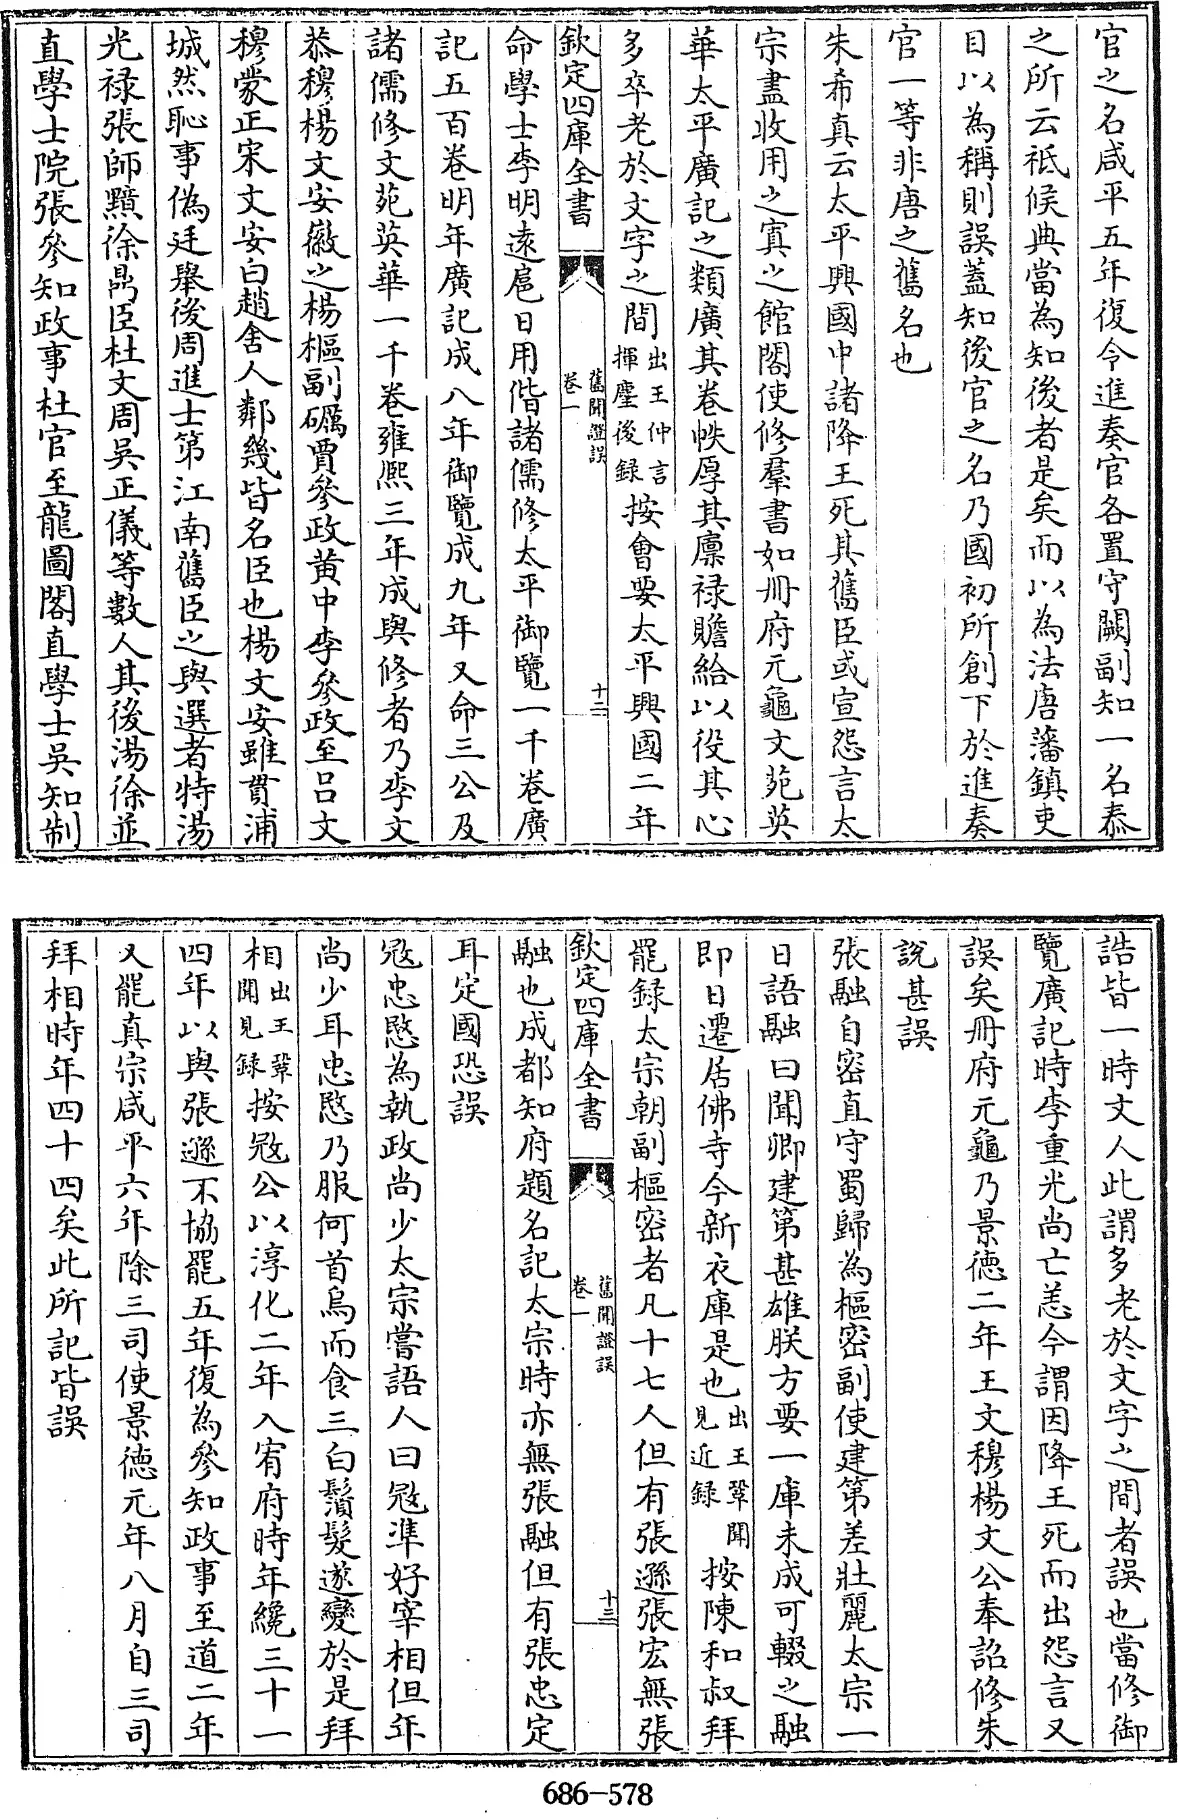 官之名咸平五年復令進奏官各置守闕副知一名泰
之所云祗候典當為知後者是矣而以為法唐藩鎮吏
目以為稱則誤蓋知後官之名乃國初所創下於進奏
官一等非唐之舊名也
朱希真云太平興國中諸降王死其舊臣或宣怨言太
宗盡收用之寘之館閣使修羣書如冊府元龜文苑英
華太平廣記之類廣其卷帙厚其廪禄贍給以役其心
多卒老於文字之間出王仲言揮麈後録按會要太平興國二年
欽定四庫全書
舊聞證誤
卷一
十二
命學士李明遠扈日用偕諸儒修太平御覽一千卷廣
記五百卷明年廣記成八年御覽成九年又命三公及
諸儒修文苑英華一千卷雍熙三年成與修者乃李文
恭穆楊文安徽之楊樞副礪賈參政黄中李參政至吕文
穆蒙正宋文安白趙舍人鄰幾皆名臣也楊文安雖貫浦
城然恥事偽廷舉後周進士第江南舊臣之與選者特湯
光禄張師黯徐鼎臣杜文周吳正儀等數人其後湯徐並
直學士院張參知政事杜官至龍圖閣直學士吳知制
誥皆一時文人此謂多老於文字之間者誤也當修御
覽廣記時李重光尚亡恙今謂因降王死而出怨言又
誤矣冊府元龜乃景德二年王文穆楊文公奉詔修朱
說甚誤
張融自密直守蜀歸為樞密副使建第差壯麗太宗一
日語融曰聞卿建第甚雄朕方要一庫未成可輟之融
即日遷居佛寺今新衣庫是也出王鞏聞見近録按陳和叔拜
罷録太宗朝副樞密者凡十七人但有張遜張宏無張
欽定四庫全書
舊聞證誤
卷一
十三
融也成都知府題名記太宗時亦無張融但有張忠定
耳定國恐誤
宼忠愍為執政尚少太宗嘗語人曰宼準好宰相但年
尚少耳忠愍乃服何首烏而食三白鬚髮遂變於是拜
相出王鞏聞見録按宼公以淳化二年入宥府時年纔三十一
四年以與張遜不協罷五年復為參知政事至道二年
又罷真宗咸平六年除三司使景德元年八月自三司
拜相時年四十四矣此所記皆誤
686-578